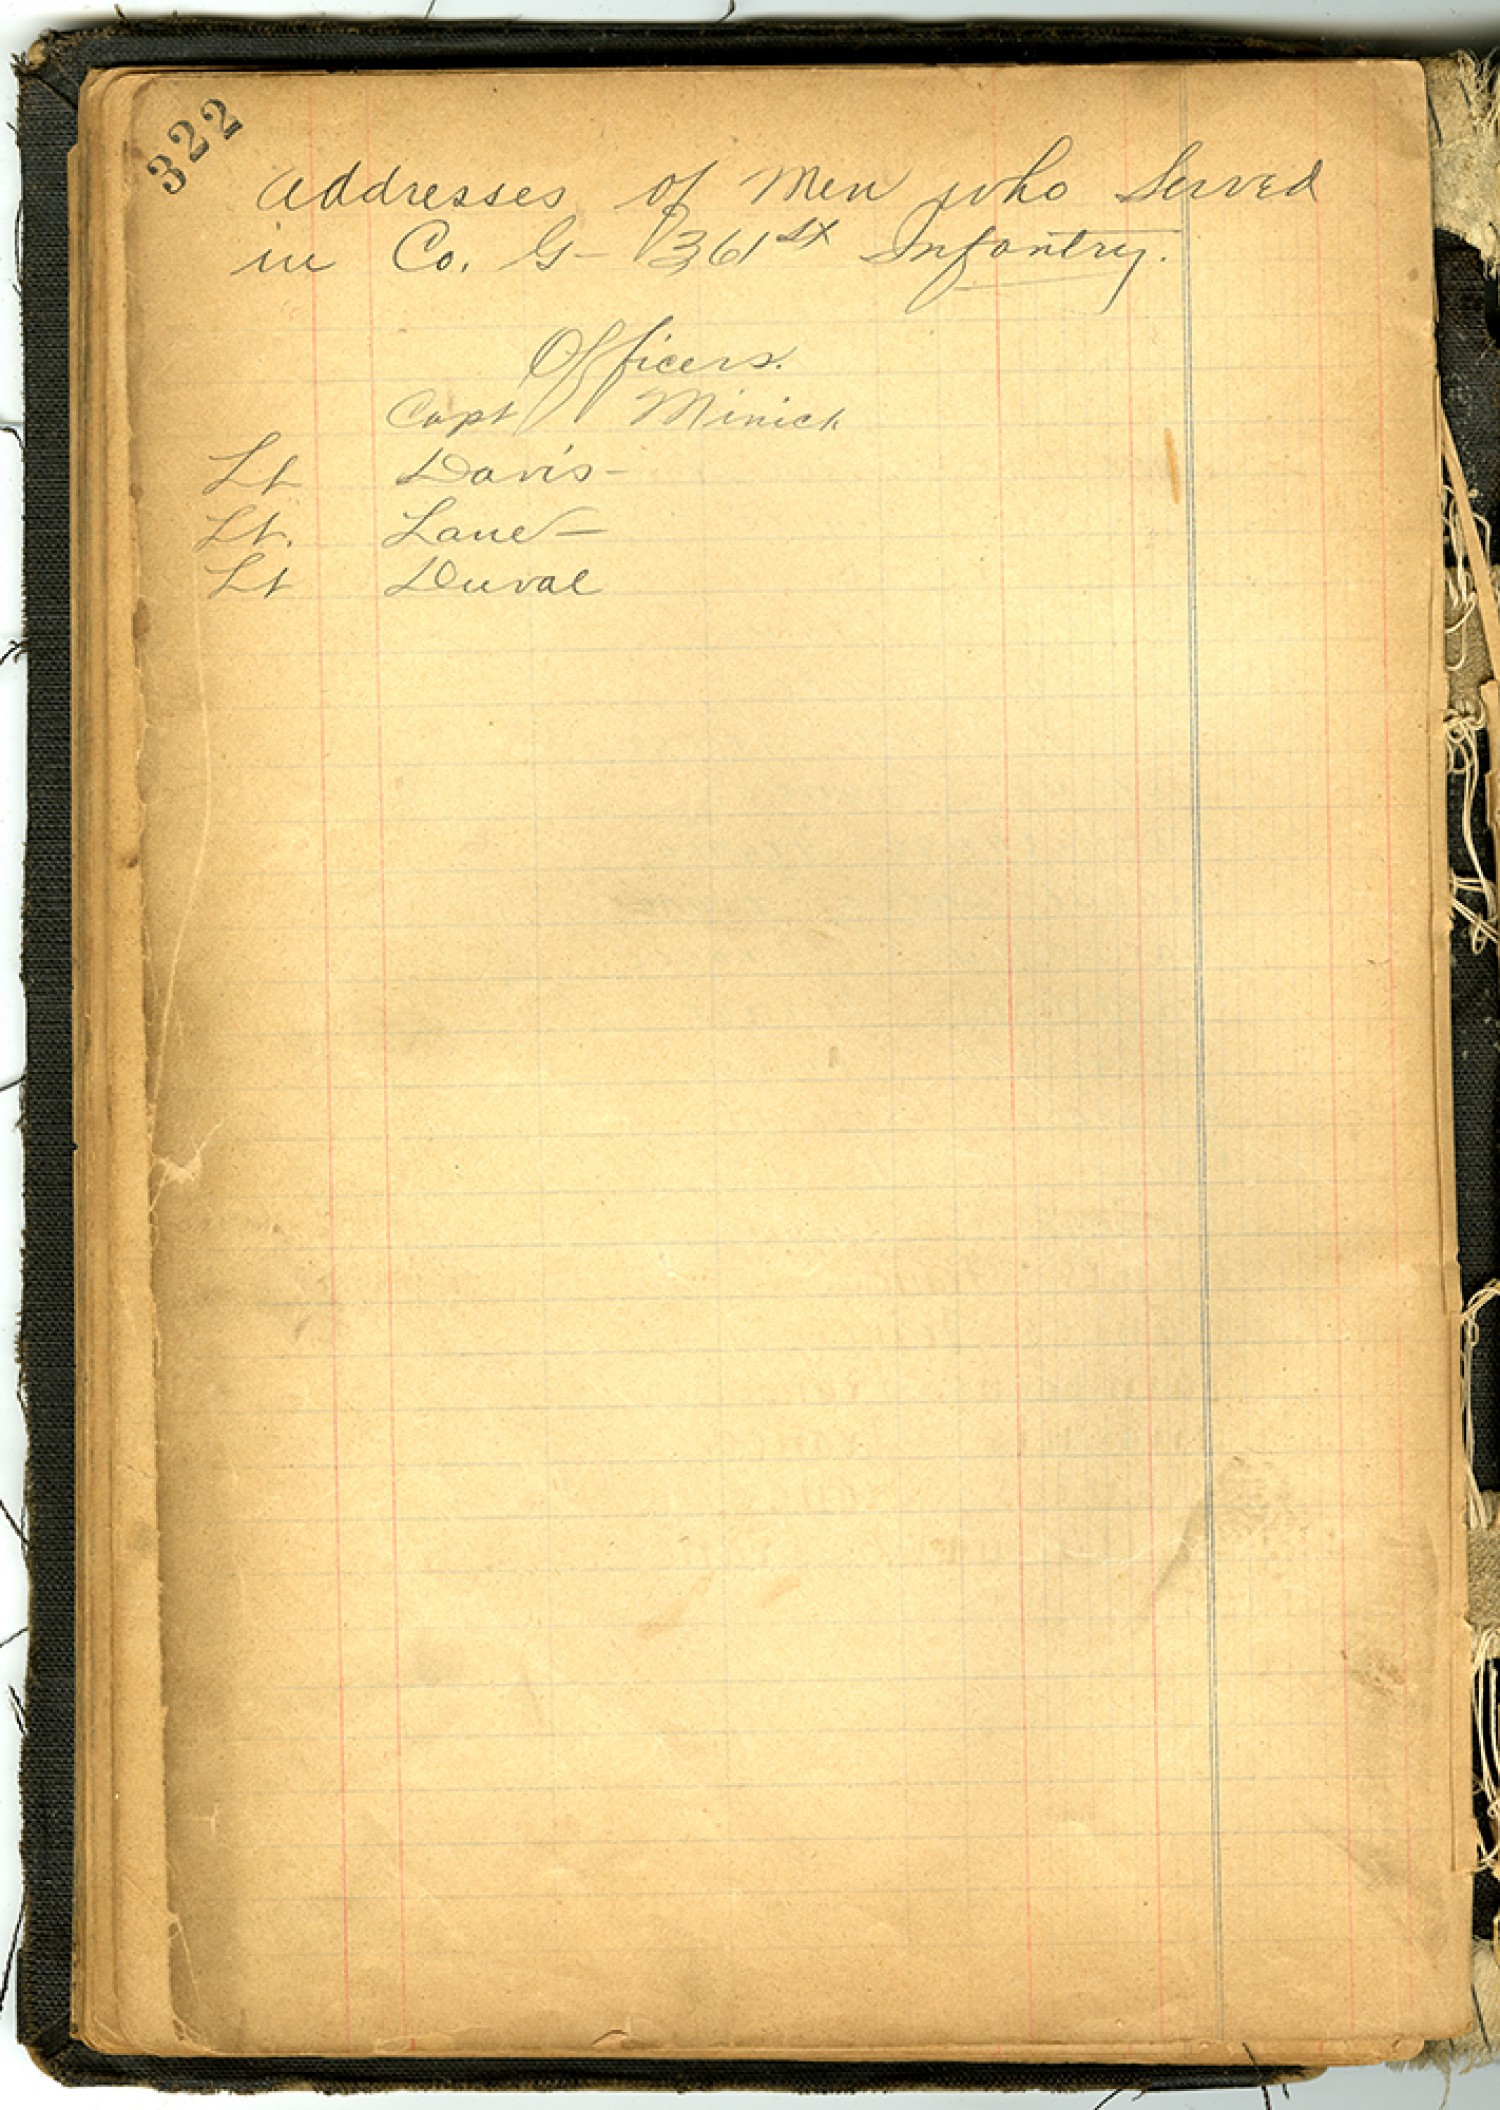 322
Addresses of Men who Served
in Co. G - 361st Infantry.
Officers.
Capt Minich
Lt Davis -
Lt. Lane -
Lt Duval